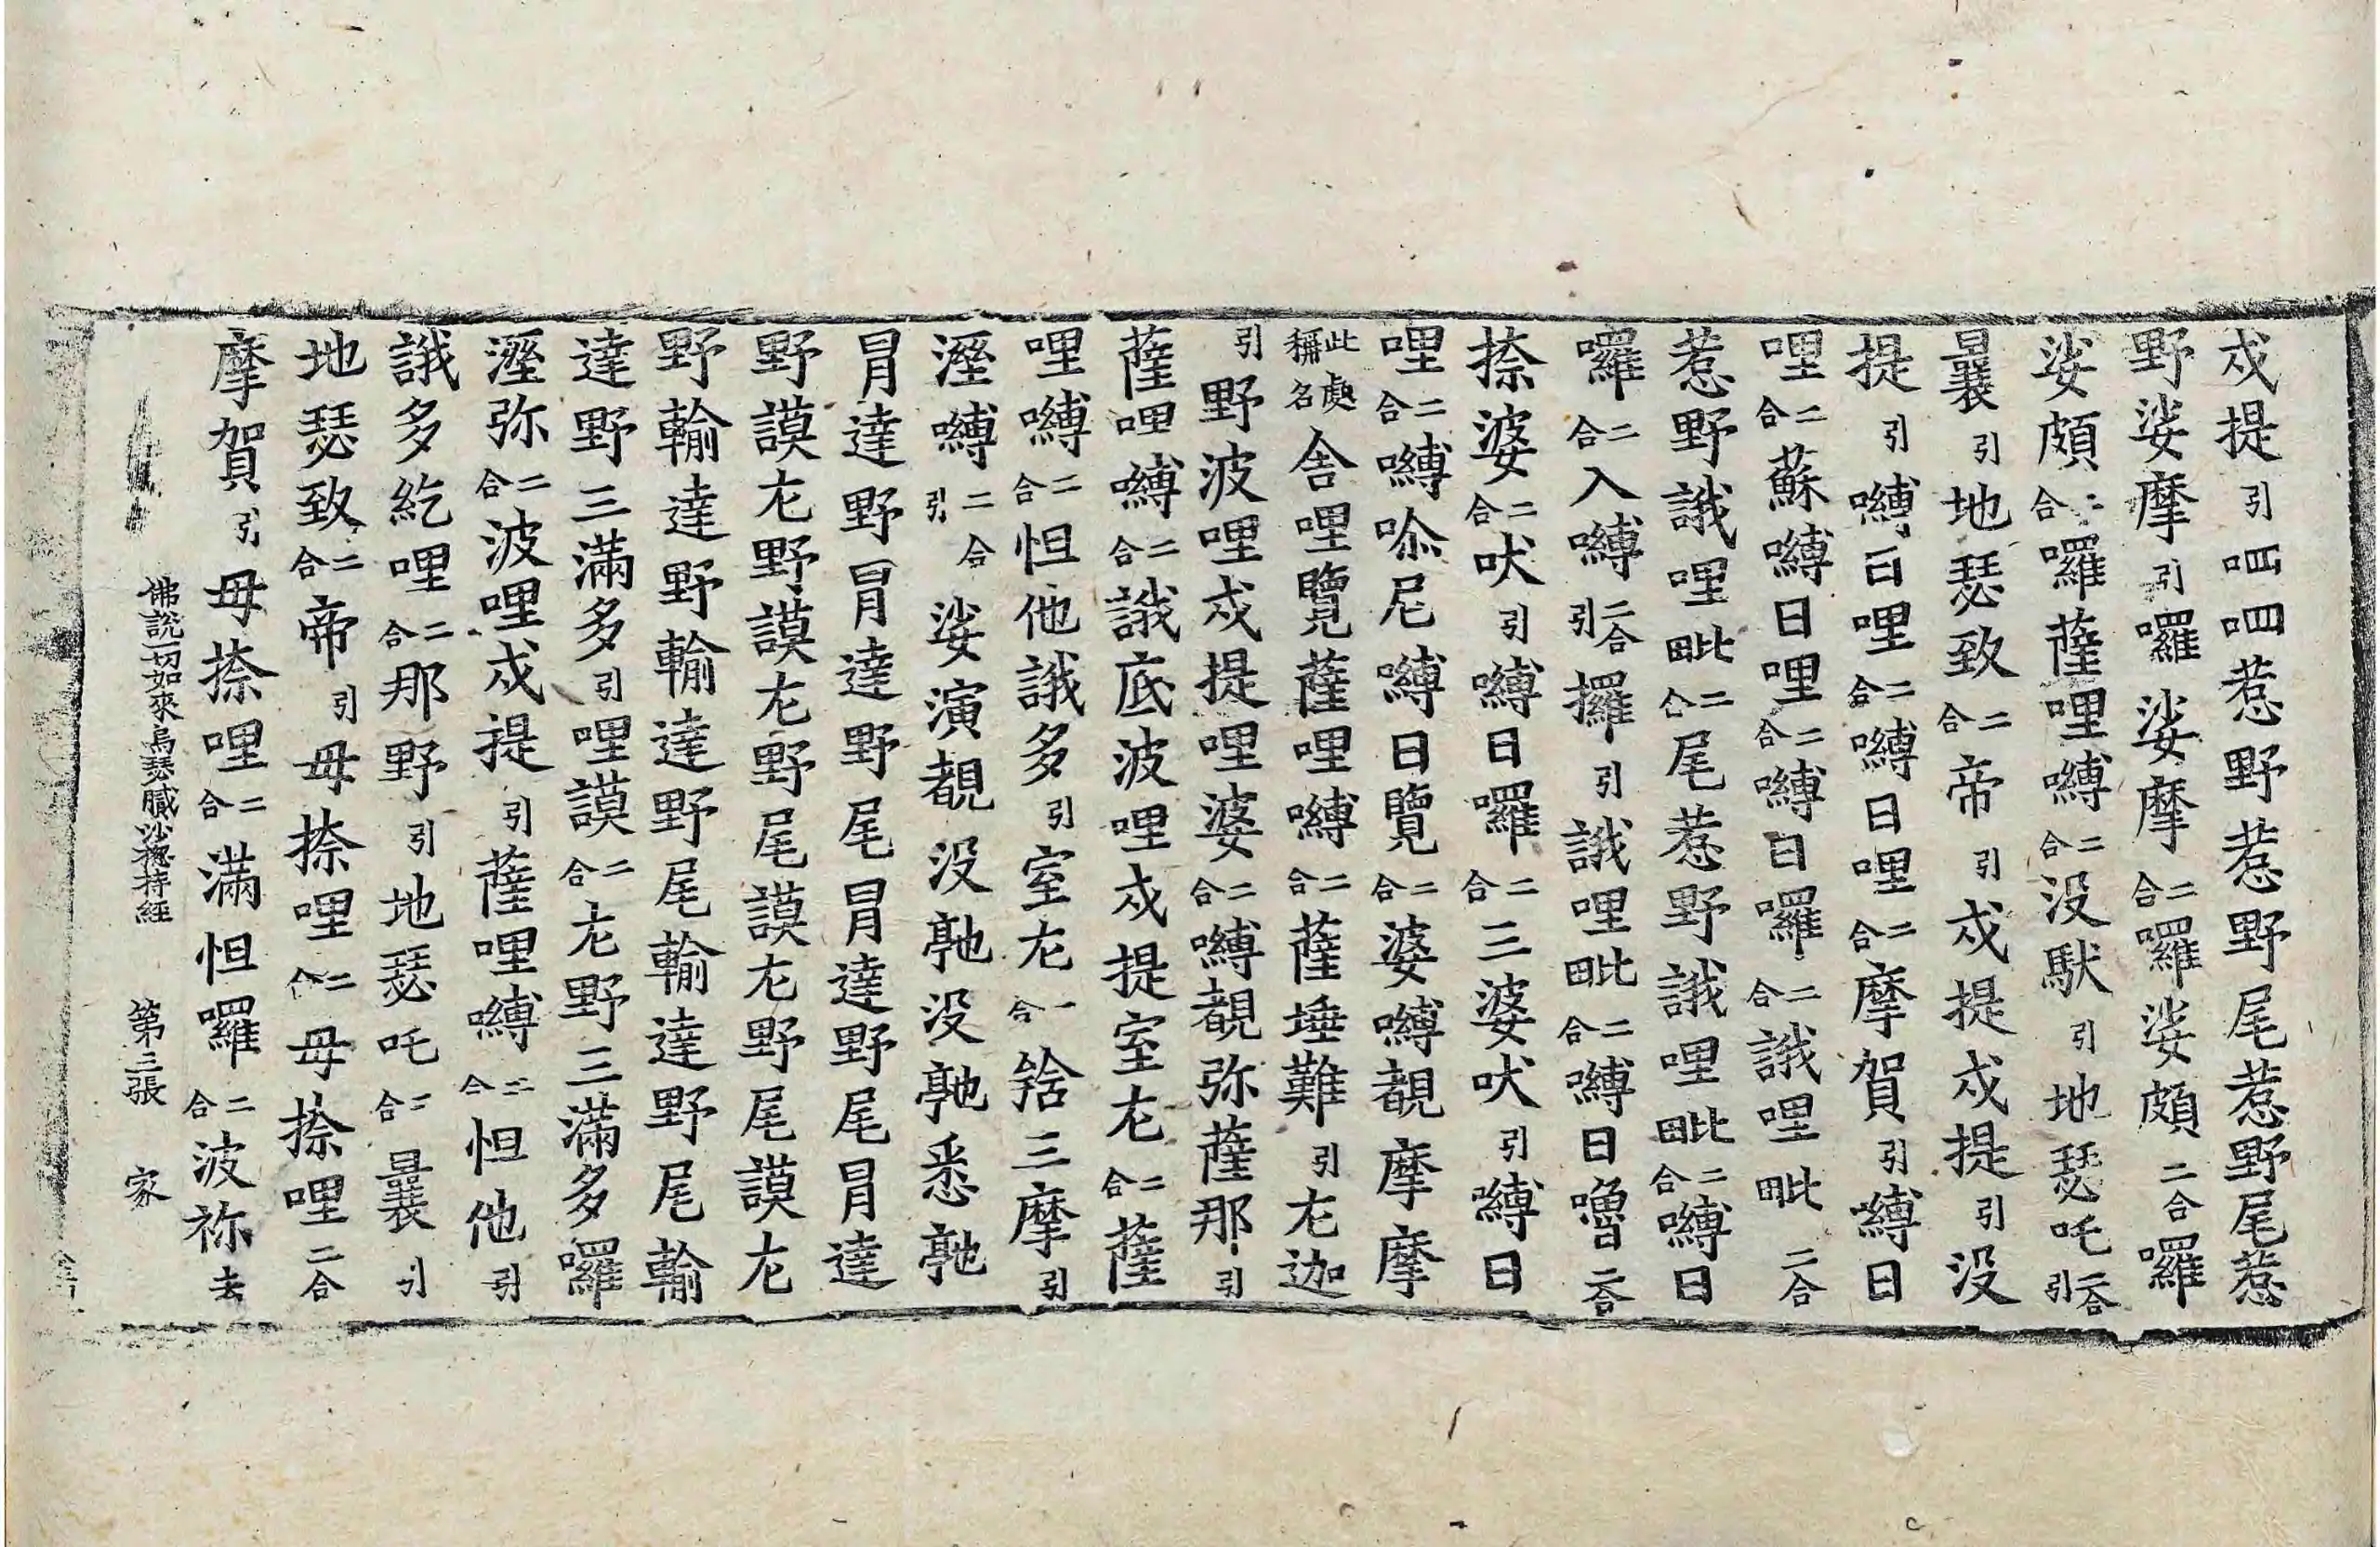 戍提引呬呬惹野惹野尾惹野尾惹
野娑摩引囉娑摩二合囉娑頗二合囉
娑頗二合囉薩哩嚩二合没馱引地瑟吒二合引
曩引地瑟致二合帝引戍提戍提引没
提引嚩日哩二合嚩日哩二合摩賀引嚩日
哩二合蘇嚩日哩二合嚩日囉二合誐哩毗二合
惹野誐哩毗二合尾惹野誐哩毗二合嚩日
囉二合入嚩二合引攞引誐哩毗二合嚩日嚕二合
捺婆二合吠引嚩日囉二合三婆吠引嚩日
哩二合嚩哛尼嚩日覽二合婆嚩覩摩摩
此處稱名舍哩覽薩哩嚩二合薩埵難引尢迦
引野波哩戍提哩婆二合嚩覩弥薩那引
薩哩嚩二合誐底波哩戍提室尢二合薩
哩嚩二合怛他誐多引室尢二合䭉三摩引
溼嚩二合引娑演覩没䭾没䭾悉䭾
冐達野冐達野尾冐達野尾冐達
野謨尢野謨尢野尾謨尢野尾謨尢
野輸達野輸達野尾輸達野尾輸
達野三滿多引哩謨二合尢野三滿多囉
溼弥二合波哩戍提引薩哩嚩二合怛他引
誐多紇哩二合那野引地瑟吒二合曩引
地瑟致二合帝引毋捺哩二合毋捺哩二合
摩賀引毋捺哩二合滿怛囉二合波祢去
佛說一切如來烏瑟膩沙揔持經 第三張 家